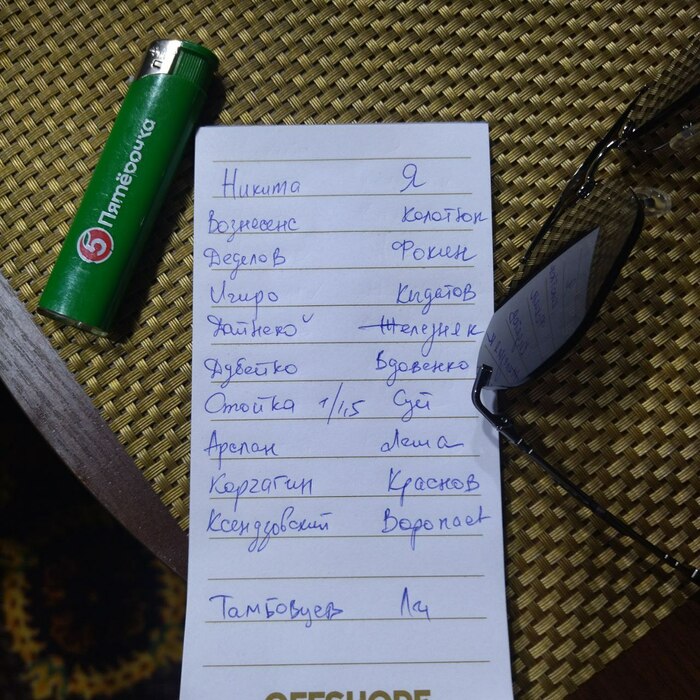 5 Пятёрочка
Никита Я
Вознесенс Колотюк
Деделов Фокин
Игиро Кыдатов
Железняк
Дубейко Вдовенко
1/1,5 Суй
Арслан Леша
Корчагин Краснов
Ксендзовский Воропаев
Тамбовцев
OFFSHORE